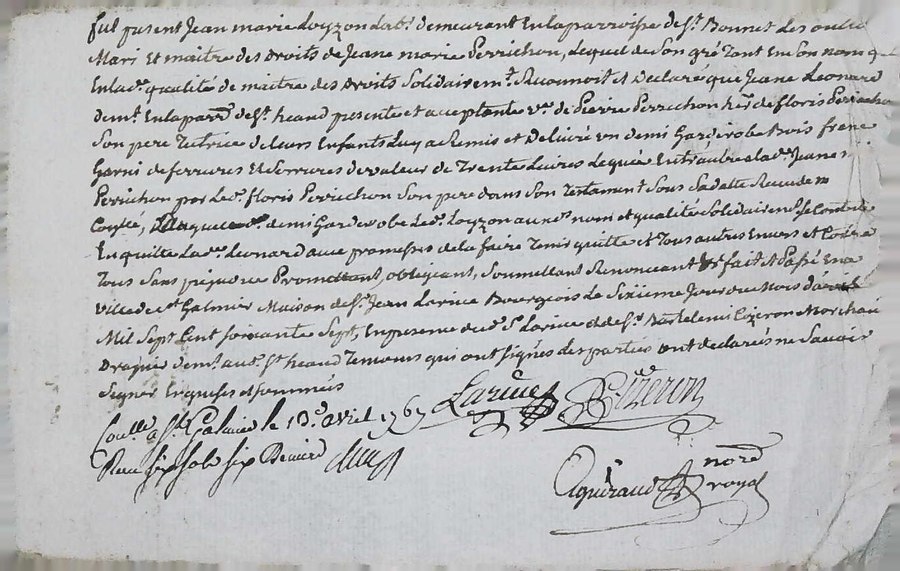 fut present Jean marie Loyzon lab.r demeurant En la parroisse de S.t Bonnet Les
Mari Et maitre des Droits de Jeane marie Perrichon, Lequel de Son gré Tant En Son nom qu
En lad.e qualité de maitre des Droits Solidairem.t Reconnoit et Declare que Jeane Leonard
dem.t En la parr.e de S.t heand presente et aceptante v.ve de Pierre Perrichon her.r de floris Perricho
Son pere Tutrice de leurs Enfants Luy a Remis et Delivré un demi Garderobe Bois frene
Garni de ferrures Et Serrures de valeur de Trente Livres Legué a lad.e Jeane
Perrichon par Led.t floris Perrichon Son pere dans Son Testament Sous Sa datte
demi Garderobe Led.t Loyzon auxd.s nom et qualité Solidairem.t Se Contente
En quitte Lad.e Leonard avec promesses de la faire Tenir quitte Tous autres Envers et Contre
Tous Sans Promettant, obligeant, Soumettant Renonceant fait et Passé En la
ville de S.t Galmier Maison de S.r Jean Larive Bourgeois Le Sixieme Jour du Mois d'avril
Mil Sept Cent Soixante Sept, En presence dud.t S.r Larive et de S.r Bartelemi Marchan
Drapier dem.t aud.t S.t heand Temoins qui ont signés Les parties ont declarés ne Savoir
Signer Enquises et Sommées
Larive
a S.t Galmier le 13.e avril 1767
six sols six Deniers
nore
royal